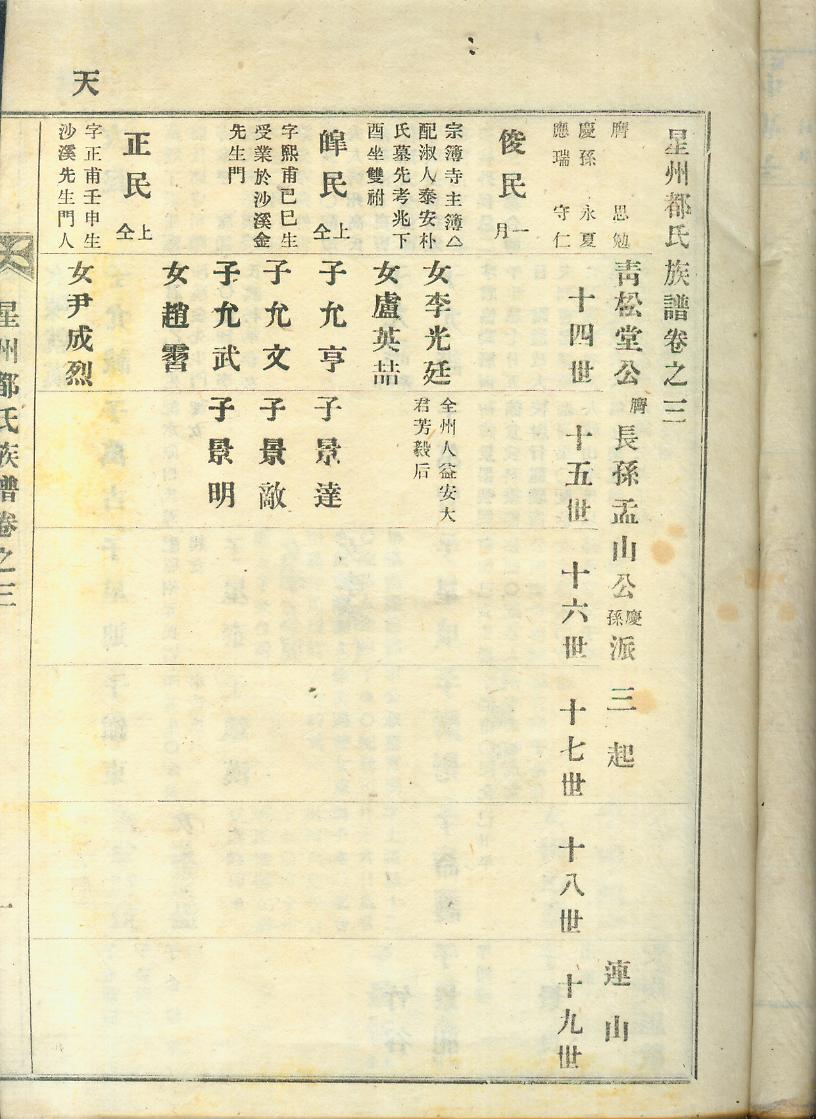 天
星州都氏族譜卷之三
靑松堂公膺長孫孟山公慶孫派 三起 連山
膺 思勉
慶孫 永夏
應瑞 守仁
十四世 十五世 十六世 十七世 十八世 十九世
俊民 一月
宗簿寺主簿△
配淑人泰安朴
氏墓先考兆下
酉坐雙祔
女李光廷
全州人益安大
君芳毅后
女盧英喆
皥民 上仝
字熙甫己巳生
受業於沙溪金
先生門
子允亨
子景達
子允文
子景敵
子允武
子景明
女趙霫
正民 上仝
字正甫壬申生
沙溪先生門人
女尹成烈
星州都氏族譜卷之三
一